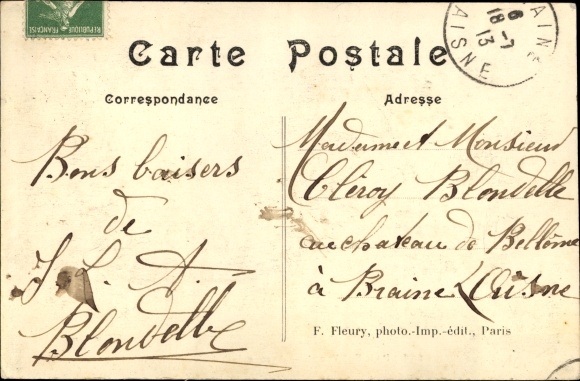 REPUBLIQUE FRANÇAISE
Carte Postale
AISNE
6
18-7
13
Correspondance
Adresse
Bons baisers
de
J. L. A.
Blondelle
Madame et Monsieur
Cléroy Blondelle
au chateau de Bellême
à Braine L'Aisne
F. Fleury, photo.-Imp.-édit., Paris